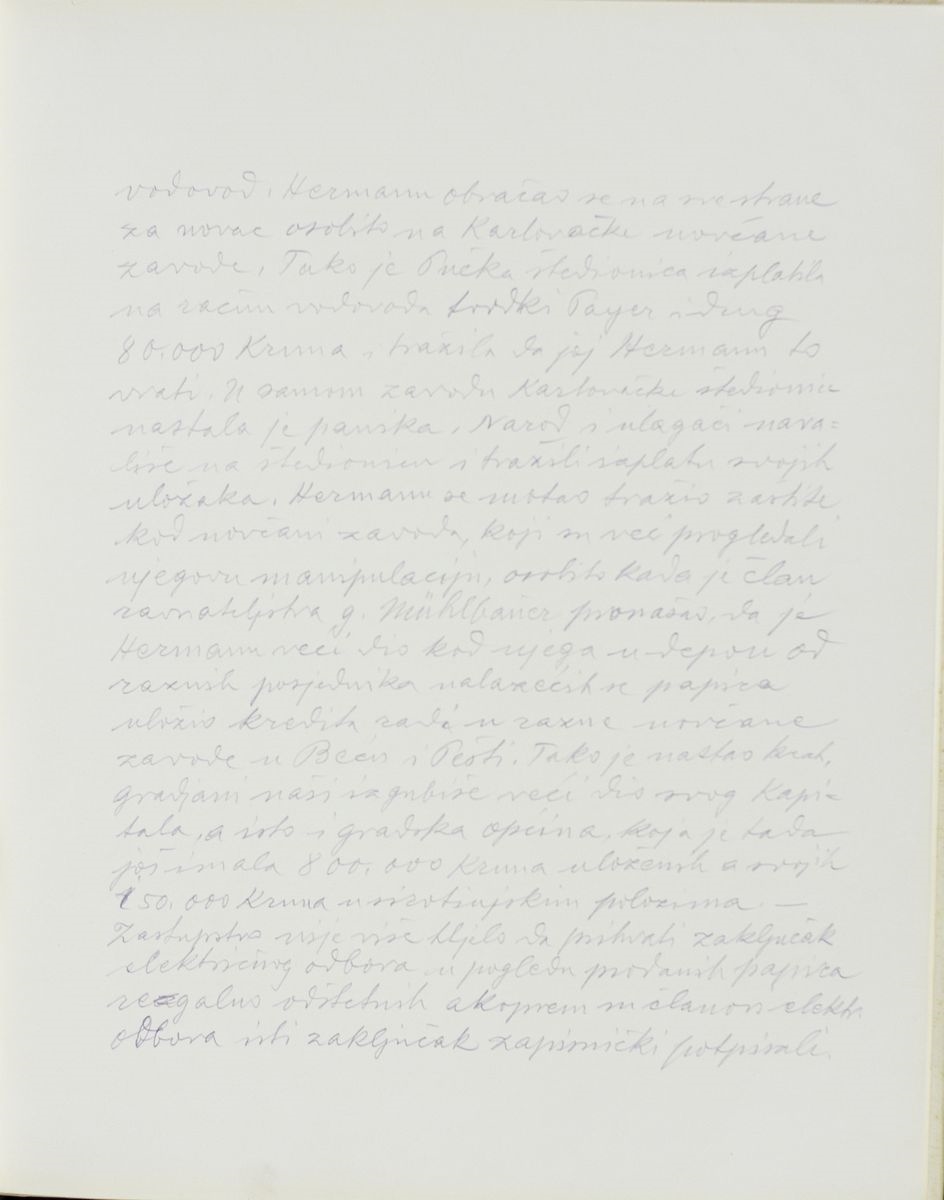 vodovod. Hermann obraćao se na sve strane
za novac osobito na Karlovačke novčane
zavode. Tako je Pučka štedionica isplatila
na račun vodovoda tvrdki Payer i drug
80.000 Kruna i tražila da joj Hermann to
vrati. U samom zavodu Karlovačke štedionice
nastala je panika. Narod i ulagači nava=
liše na štedionicu i tražili isplatu svojih
uložaka. Hermann se motao tražio zaštite
kod novčani zavoda, koji su već progledali
njegovu manipulaciju, osobito kada je član
ravnateljstva g. Mühlbauer pronašao, da je
Hermann veći dio kod njega u depou od
raznih posjednika nalazećih se papira
uložio kredita radi u razne novčane
zavode u Beču i Pešti. Tako je nastao krah,
gradjani naši izgubiše veći dio svog Kapi-
tala, a isto i gradska općina, koja je tada
još imala 800.000 Kruna uloženih a svojih
150.000 Kruna u sirotinjskim polozima. —
Zastupstvo nije više htjelo da prihvati zaključak
električnog odbora u pogledu prodanih papira
regalno odštetnih akoprem su članovi elektr.
odbora isti zaključak zapisnički potpisali.